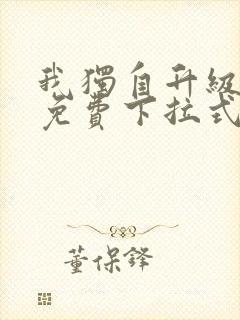 我獨自升級
免費下拉式
董保鋒